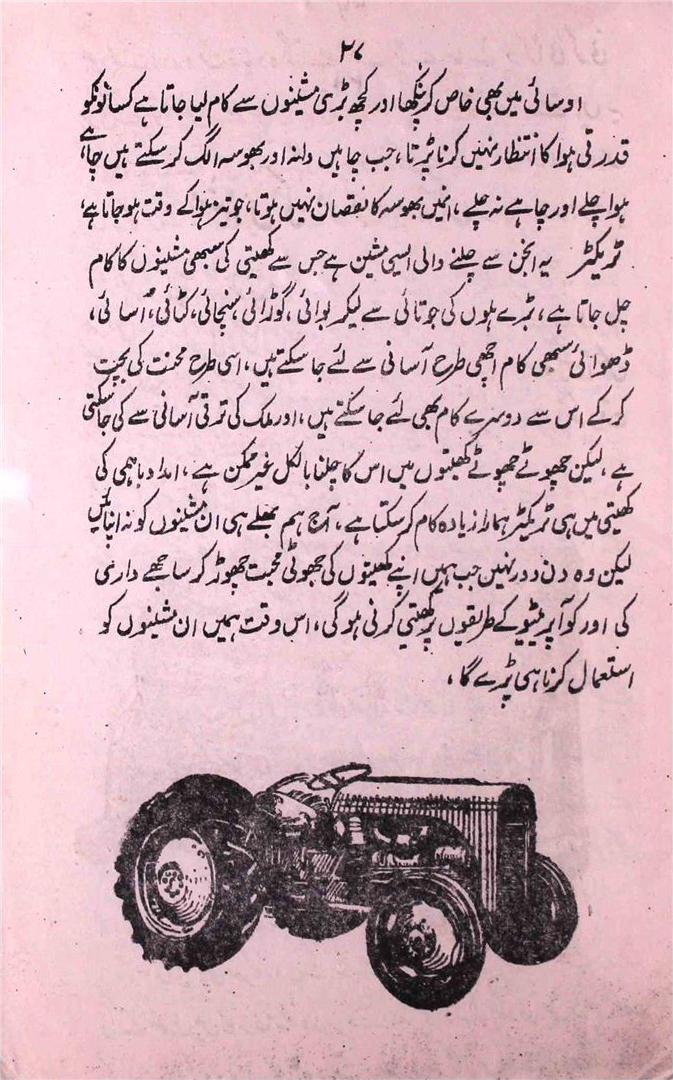 ۳۷
اوسائی میں بھی خاص کر پنکھا اور کچھ بڑی مشینوں سے کام لیا جاتا ہے کسانونکو
قدرتی ہوا کا انتظار نہیں کرنا پڑتا، جب چاہیں دانہ اور بھوسہ الگ کر سکتے ہیں چاہے
ہوا چلے اور چاہے نہ چلے، انمیں بھوسہ کا نقصان نہیں ہوتا، جو تیز ہوا کے وقت ہو جاتا ہے،
ٹریکٹر یہ انجن سے چلنے والی ایسی مشین ہے جس سے کھیتی کی سبھی مشینوں کا کام
چل جاتا ہے، بڑے ہلوں کی جوتائی سے لیکر بوائی، گوڑائی سنچائی، کٹائی، اُسائی،
ڈھوائی سبھی کام اچھی طرح آسانی سے لئے جا سکتے ہیں، اسی طرح محنت کی بچت
کر کے اس سے دوسرے کام بھی لئے جا سکتے ہیں، اور ملک کی ترقی آسانی سے کی جا سکتی
ہے، لیکن چھوٹے چھوٹے کھیتوں میں اس کا چلنا بالکل غیر ممکن ہے، امداد باہمی کی
کھیتی میں ہی ٹریکٹر ہمارا زیادہ کام کر سکتا ہے، آج ہم بھلے ہی ان مشینوں کو نہ اپنائیں
لیکن وہ دن دور نہیں جب ہمیں اپنے کھیتوں کی جھوٹی محبت چھوڑ کر ساجھے داری
کی اور کوآپریٹیو کے طریقوں پر کھیتی کرنی ہوگی، اس وقت ہمیں ان مشینوں کو
استعمال کرنا ہی پڑے گا،